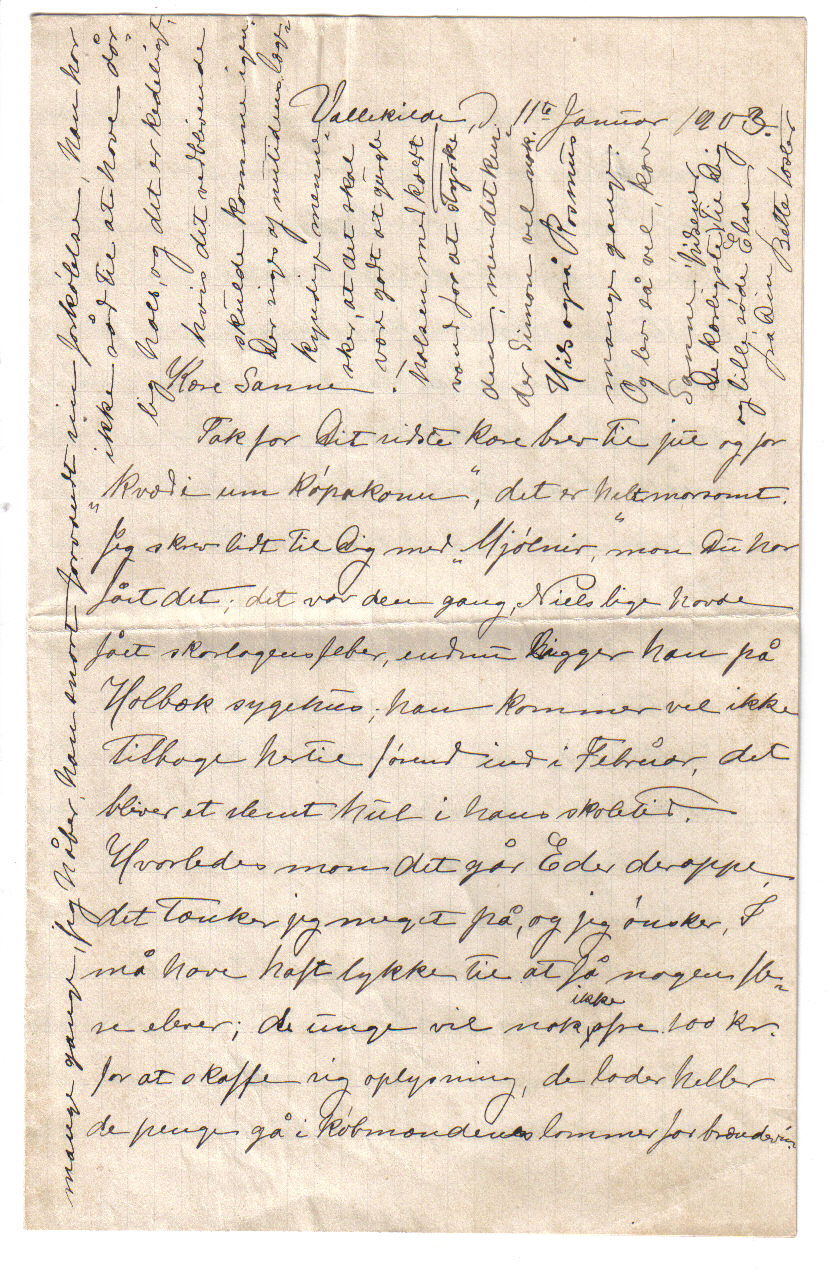 Vallekilde, d. 11te Januar 1903.
Kære Sanne
Tak for Dit sidste kære brev til jul og for
"Kvæði um kópakonu", det er helt morsomt.
Jeg skrev lidt til Dig med "Mjølnir," mon Du har
fået det; det var den gang, Niels lige havde
fået skarlagensfeber, endnu ligger han på
Holbæk sygehus; han kommer vel ikke
tilbage hertil førend ind i Februar, det
bliver et slemt hul i hans skoletid.
Hvorledes mon det går Eder deroppe,
det tænker jeg meget på, og jeg ønsker, I
må have haft lykke til at få nogen fle-
re elever; de unge vil nok ikke ofre 100 kr.
for at skaffe sig oplysning, de lader heller
de penge gå i købmændenes lommer for brændevin
mange gange, jeg håber, han snart forvandt sin forkølelse, han har
ikke råd til at have dår-
lig hals, og det er kedeligt,
hvis det vedblivende
skulde komme igen.
Der siges af nutidens læge-
kyndige menne-
sker, at det skal
være godt at gurgle
halsen med koldt
vand for at styrke
den, men det ken-
der Simon vel nok.
Hils også Rasmus
mange gange.
Og lev så vel, kære
Sanne!
De kærligste hilsener til Dig
og lille, søde Elsa
fra Din Bette faster